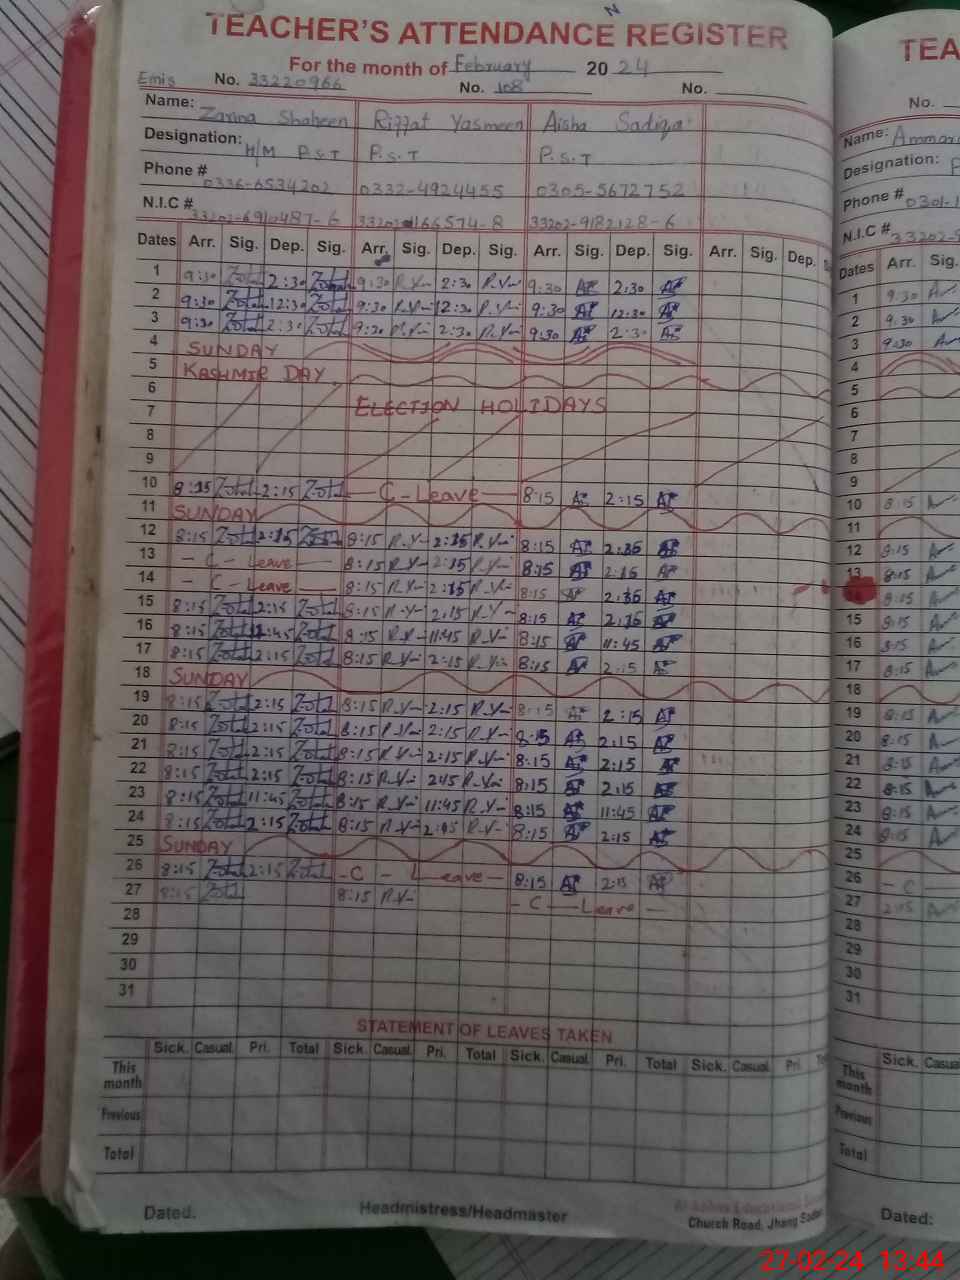 TEACHER'S ATTENDANCE REGISTER
For the month of February 2024
Emis No. 33220966 No. 108 No.
Name: Zarina Shaheen Riffat Yasmeen Aisha Sadiqa
Designation: H/M P.S.T P.S.T P.S.T
Phone # 0336-6534202 0332-4924455 0305-5672752
N.I.C # 33202-6910487-6 33202-166574-8 33202-9182128-6
Dates Arr. Sig. Dep. Sig. Arr. Sig. Dep. Sig. Arr. Sig. Dep. Sig. Arr. Sig. Dep.
1 9:30 2:30 9:30 R.Y 2:30 R.Y 9:30 2:30
2 9:30 12:30 9:30 R.Y 12:30 R.Y 9:30 12:30
3 9:30 2:30 9:30 R.Y 2:30 R.Y 9:30 2:30
4 SUNDAY
5 KASHMIR DAY
6
7 ELECTION HOLIDAYS
8
9
10 8:15 2:15 C-Leave 8:15 2:15
11 SUNDAY
12 8:15 2:15 8:15 R.Y 2:15 R.Y 8:15 2:15
13 - C - Leave 8:15 R.Y 2:15 R.Y 8:15 2:15
14 - C - Leave 8:15 R.Y 2:15 R.Y 8:15 2:15
15 8:15 2:15 8:15 R.Y 2:15 R.Y 8:15 2:15
16 8:15 11:45 8:15 R.Y 11:45 R.Y 8:15 11:45
17 8:15 2:15 8:15 R.Y 2:15 R.Y 8:15 2:15
18 SUNDAY
19 8:15 2:15 8:15 R.Y 2:15 R.Y 8:15 2:15
20 8:15 2:15 8:15 R.Y 2:15 R.Y 8:15 2:15
21 8:15 2:15 8:15 R.Y 2:15 R.Y 8:15 2:15
22 8:15 2:15 8:15 R.Y 2:15 R.Y 8:15 2:15
23 8:15 11:45 8:15 R.Y 11:45 R.Y 8:15 11:45
24 8:15 2:15 8:15 R.Y 2:15 R.Y 8:15 2:15
25 SUNDAY
26 8:15 2:15 - C - Leave - 8:15 2:15
27 8:15 8:15 R.Y - C - Leave -
28
29
30
31
STATEMENT OF LEAVES TAKEN
Sick. Casual. Pri. Total Sick. Casual. Pri. Total Sick. Casual. Pri. Total Sick. Casual. Pri.
This month
Previous
Total
Dated. Headmistress/Headmaster
Church Road, Jhang Sadar
TEA
No.
Name:
Designation: P
Phone # 0301-1
N.I.C # 33202-
Dates Arr. Sig.
1 9:30
2 9:30
3 9:30
4
5
6
7
8
9
10 8:15
11
12 8:15
13 8:15
8:15
15 8:15
16 8:15
17 8:15
18
19 8:15
20 8:15
21 8:15
22 8:15
23 8:15
24 8:15
25
26 - C
27
28
29
30
31
Sick. Casua
This month
Previous
Total
Dated:
27-02-24 13:44